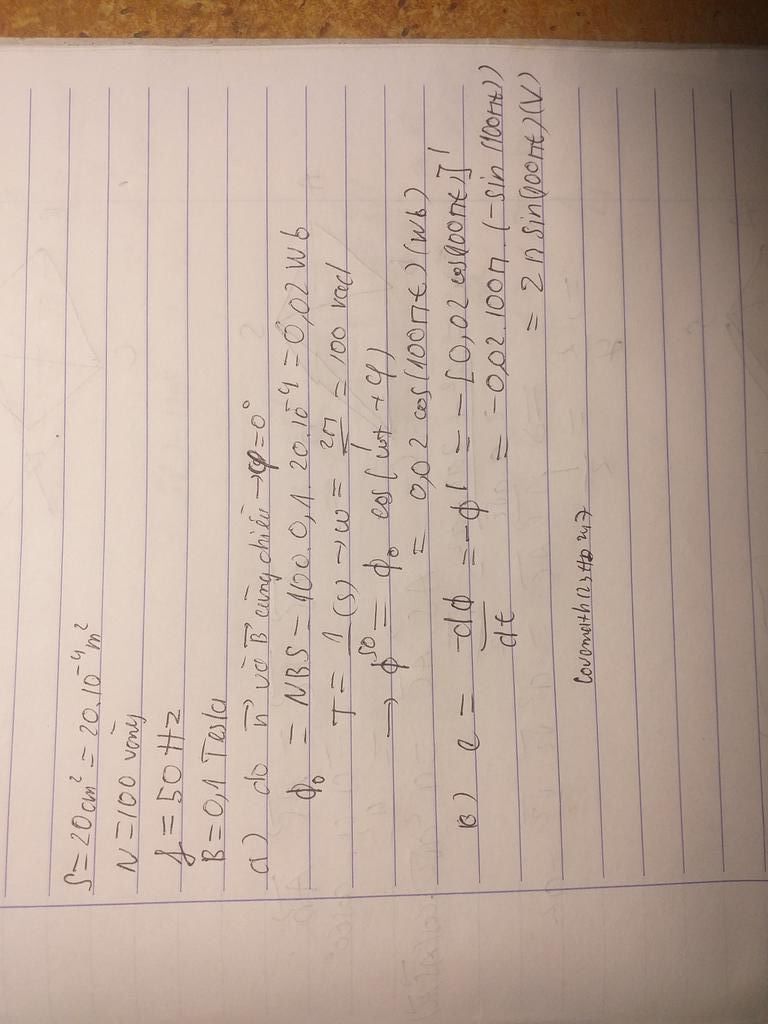 S = 20cm² = 20.10⁻⁴ m²
N = 100 vòng
f = 50 Hz
B = 0,1 Tesla
a) do n⃗ và B⃗ cùng chiều → φ = 0°
ϕ₀ = NBS = 100.0,1.20.10⁻⁴ = 0,02 Wb
T = 1/50 (s) → ω = 2π/T = 100 rad
→ ϕ = ϕ₀ cos(ωt + φ)
= 0,02 cos(100πt) (Wb)
B) e = -dϕ/dt = -ϕ' = -[0,02 cos(100πt)]'
= -0,02.100π.(-sin(100πt))
= 2π sin(100πt) (V)